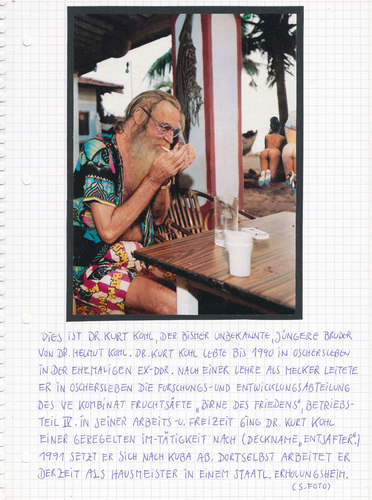 DIES IST DR. KURT KOHL, DER BISHER UNBEKANNTE, JÜNGERE BRUDER
VON DR. HELMUT KOHL. DR. KURT KOHL LEBTE BIS 1990 IN OSCHERSLEBEN
IN DER EHEMALIGEN EX-DDR. NACH EINER LEHRE ALS MELKER LEITETE
ER IN OSCHERSLEBEN DIE FORSCHUNGS- UND ENTWICKLUNGSABTEILUNG
DES VE KOMBINAT FRUCHTSÄFTE „BIRNE DES FRIEDENS“, BETRIEBS-
TEIL IV. IN SEINER ARBEITS- U. FREIZEIT GING DR. KURT KOHL
EINER GEREGELTEN IM-TÄTIGKEIT NACH (DECKNAME „ENTSAFTER“)
1991 SETZT ER SICH NACH KUBA AB. DORTSELBST ARBEITET ER
DERZEIT ALS HAUSMEISTER IN EINEM STAATL. ERHOLUNGSHEIM.
(S. FOTO)